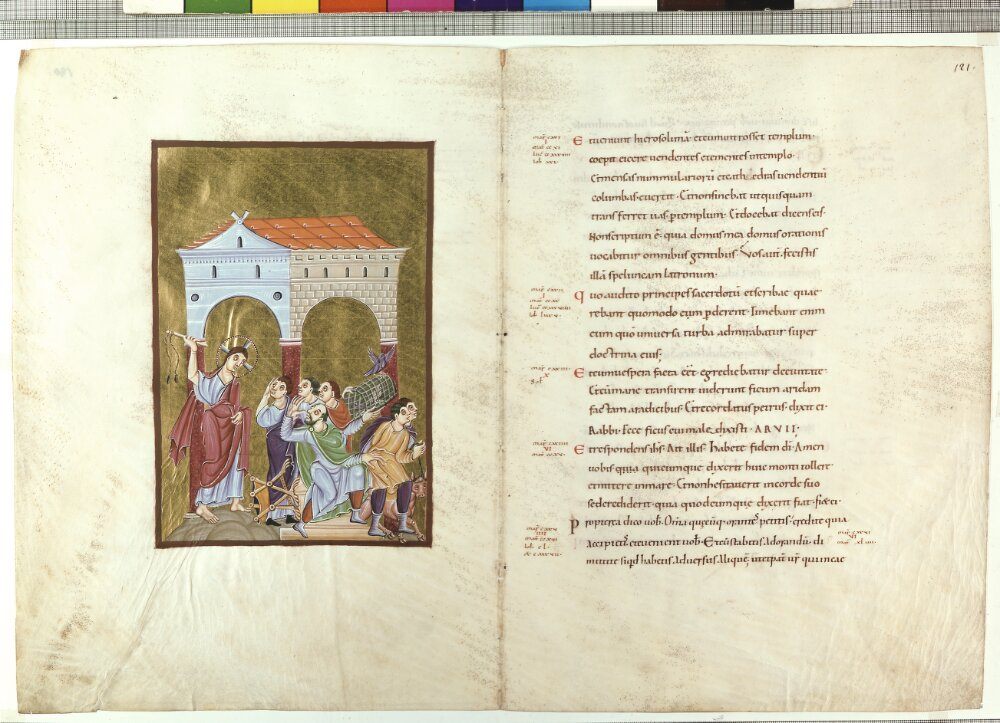 121.
Et ueniunt hierosolimā et cum introisset templum.
coepit eicere uendentes et ementes in templo.
Et mensas nummulariorū et cathedras uendentiū
columbas euertit. Et non sinebat ut quisquam
transferret uas p templum. Et docebat dicens eis.
Non scriptum ē. quia domus mea domus orationis
uocabitur omnibus gentibus. Vos aut fecistis
illā speluncam latronum.
quo audito principes sacerdotū et scribae quae
rebant quomodo eum pderent. Timebant enim
eum quō uniuersa turba admirabatur super
doctrina eius;
Et cum uespera facta eēt egrediebatur de ciuitate.
Et cū mane transirent uiderunt ficum aridam
factam a radicibus. Et recordatus petrus dixit ei.
Rabbi. Ecce ficus cui maledixisti ARVIT.
Et respondens ihs. Ait illis habete fidem di. Amen
uobis quia quicumque dixerit huic monti tollere
et mittere in mare. Et non hesitauerit in corde suo
sed crediderit. quia quodcumque dixerit fiat. fiaet ei.
Propterea dico uob. Omia quęcūq; orantes petitis. credite quia
accipietis et euenient uob. Et cū stabitis. Ad orandū. di
mittite siqd habetis. Aduersus. Aliquē. ut et pat ur qui in cae